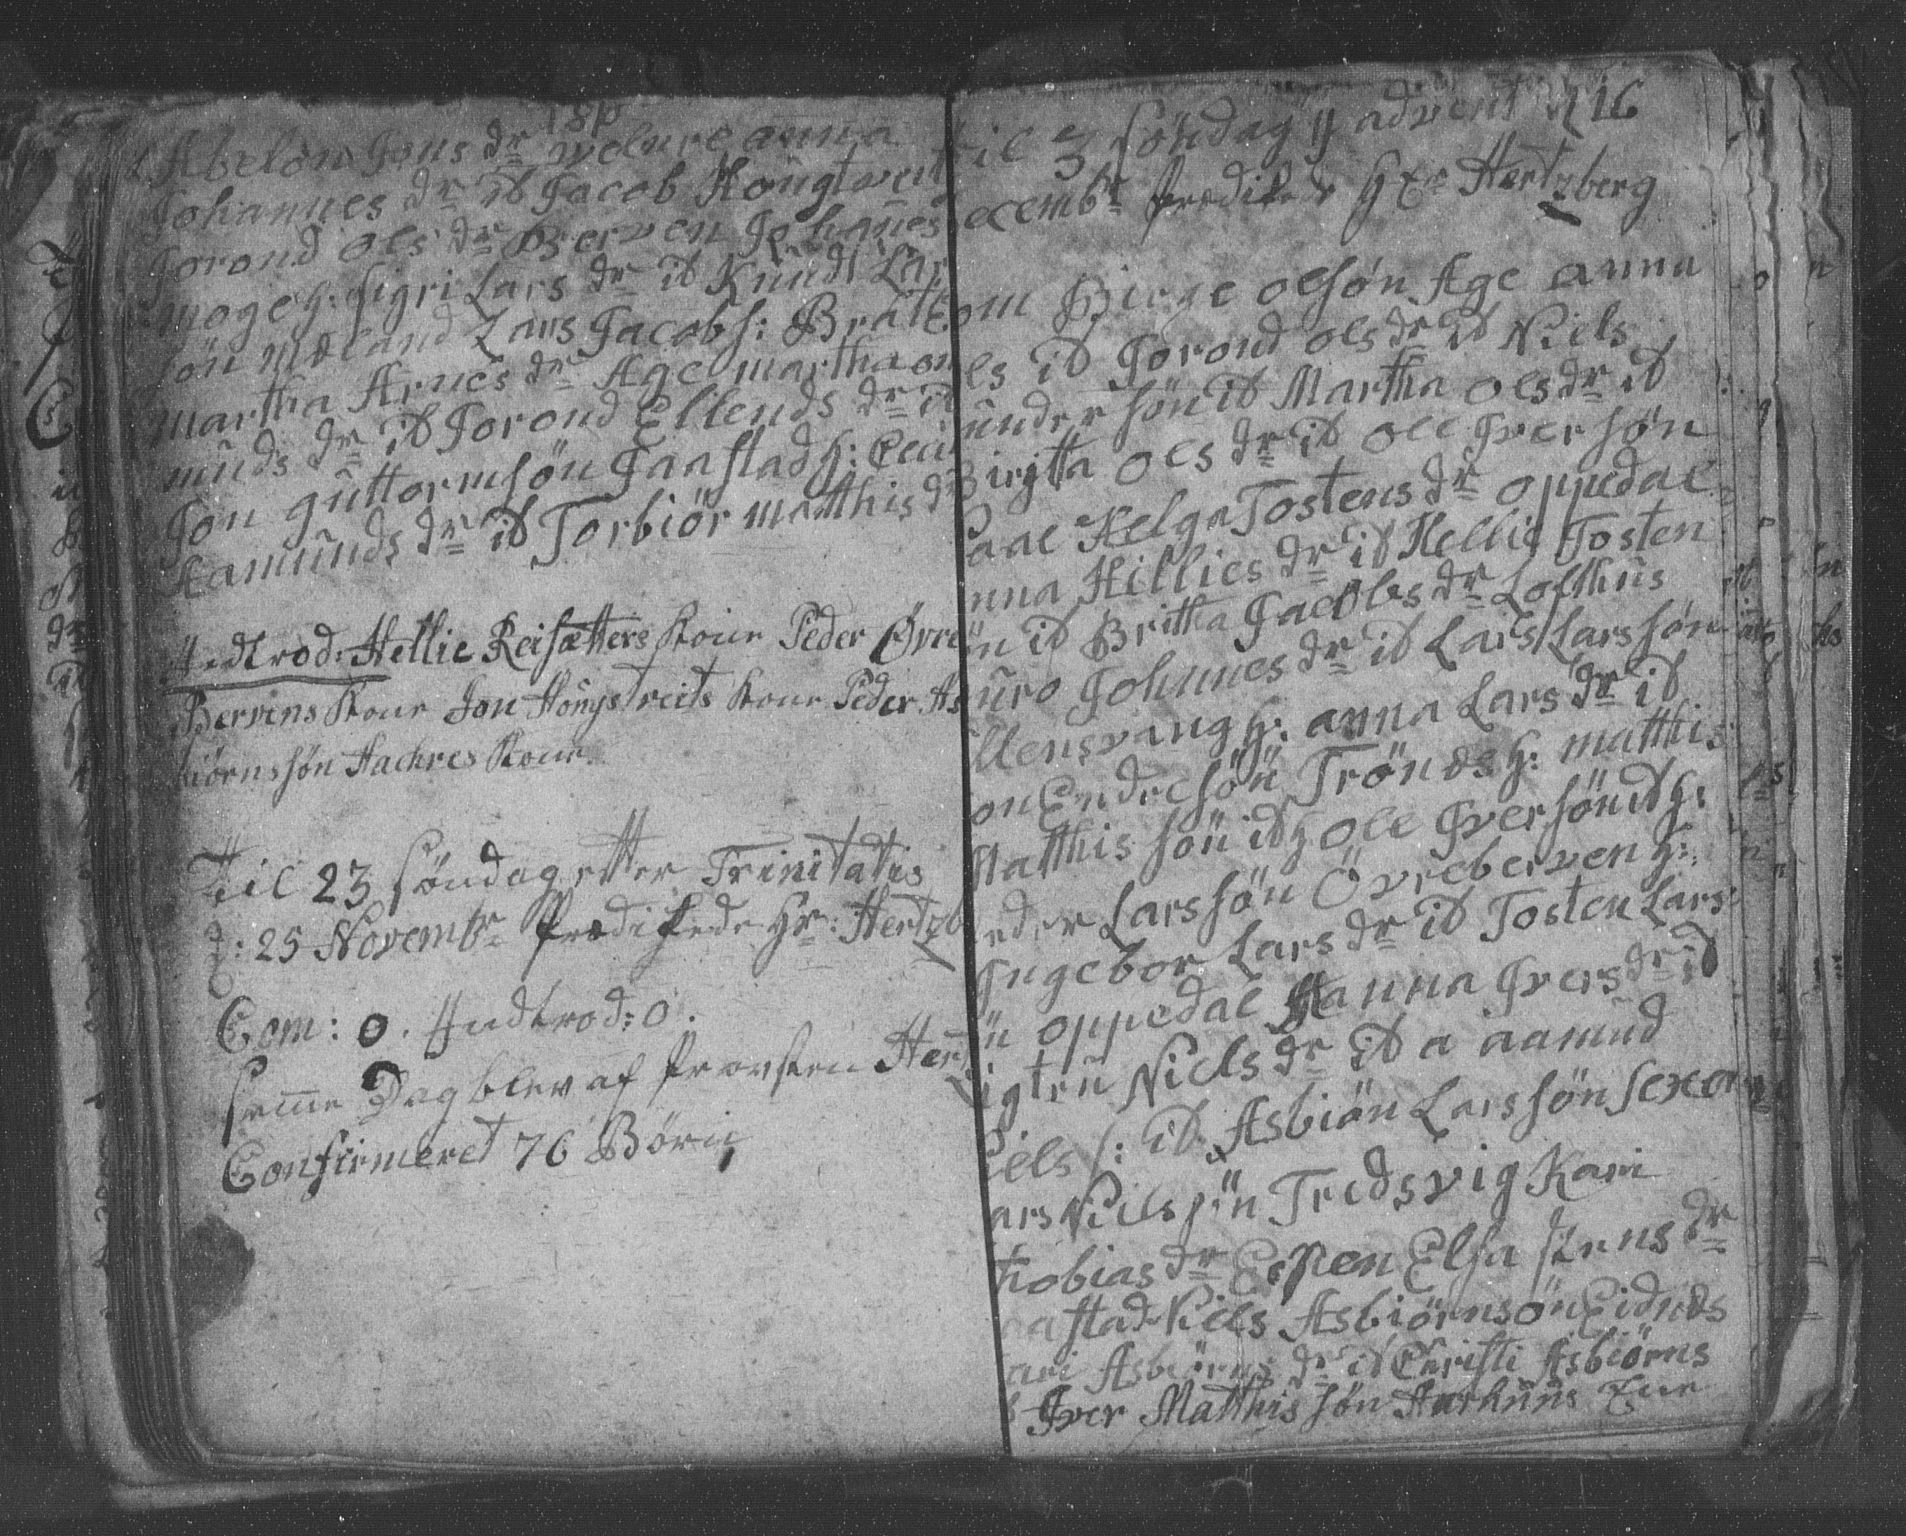 Abelon Jons dr velure anna
Johannes dr it Jacob Hougtveit
Jorond ols dr Berven Johanes
moge h: sigri Lars dr it Knudt Lar
sön mæland Lars Jacobs: Bratt
martha Arnes dr Age martha om
munds dr it Jorond Ellends dr it
Jon guttormsön Jaastad h:
Aamunds dr it Torbiör matthis dr
Indtrod: Hellie Reisætters Kone Peder Øvre
Bervens Kone Jon Hougstveits Kone Peder As
biörnssön Hachres Kone
Til 23 söndag etter Trinitatis
d: 25 Novembr Prædikede Hr: Hertzb
Com: 0. Indtrod: 0.
samme Dag blev af Provsten Hertz
Confirmeret 76 Börn
til 3 söndag j advent d 16
ecembr Prædikede Hr Hertzberg
om Birge olsön Age anna
ls it Jorond ols dr it Niels
under sön it Martha ols dr it
Birgtta ols dr it ole Iversön
aal Helga Tostens dr oppedal
nna Hellies dr it Hellie Tosten
ön it Britha Jacobs dr Lofthus
uro Johnnes dr it Lars Larssön
llensvang h: anna Lars dr it
on Endresön Trönes h: matthis
Matthis sön it h ole Iversön it h:
eder Larssön Övreberven h:
Ingebor Lars dr it Tosten Lars
ön oppedal Hanna Ivers dr it
sigtru Niels dr it a aamund
iels s: it Asbiön Larssön sexe
ars Nielssön Tredsvig Kari
Tobias dr Espen Elsa stens dr
aastad Niels Asbiörnsön Eidnes
ari Asbiörns dr it Christi Asbiörns
Iver Matthis sön Aarhuus